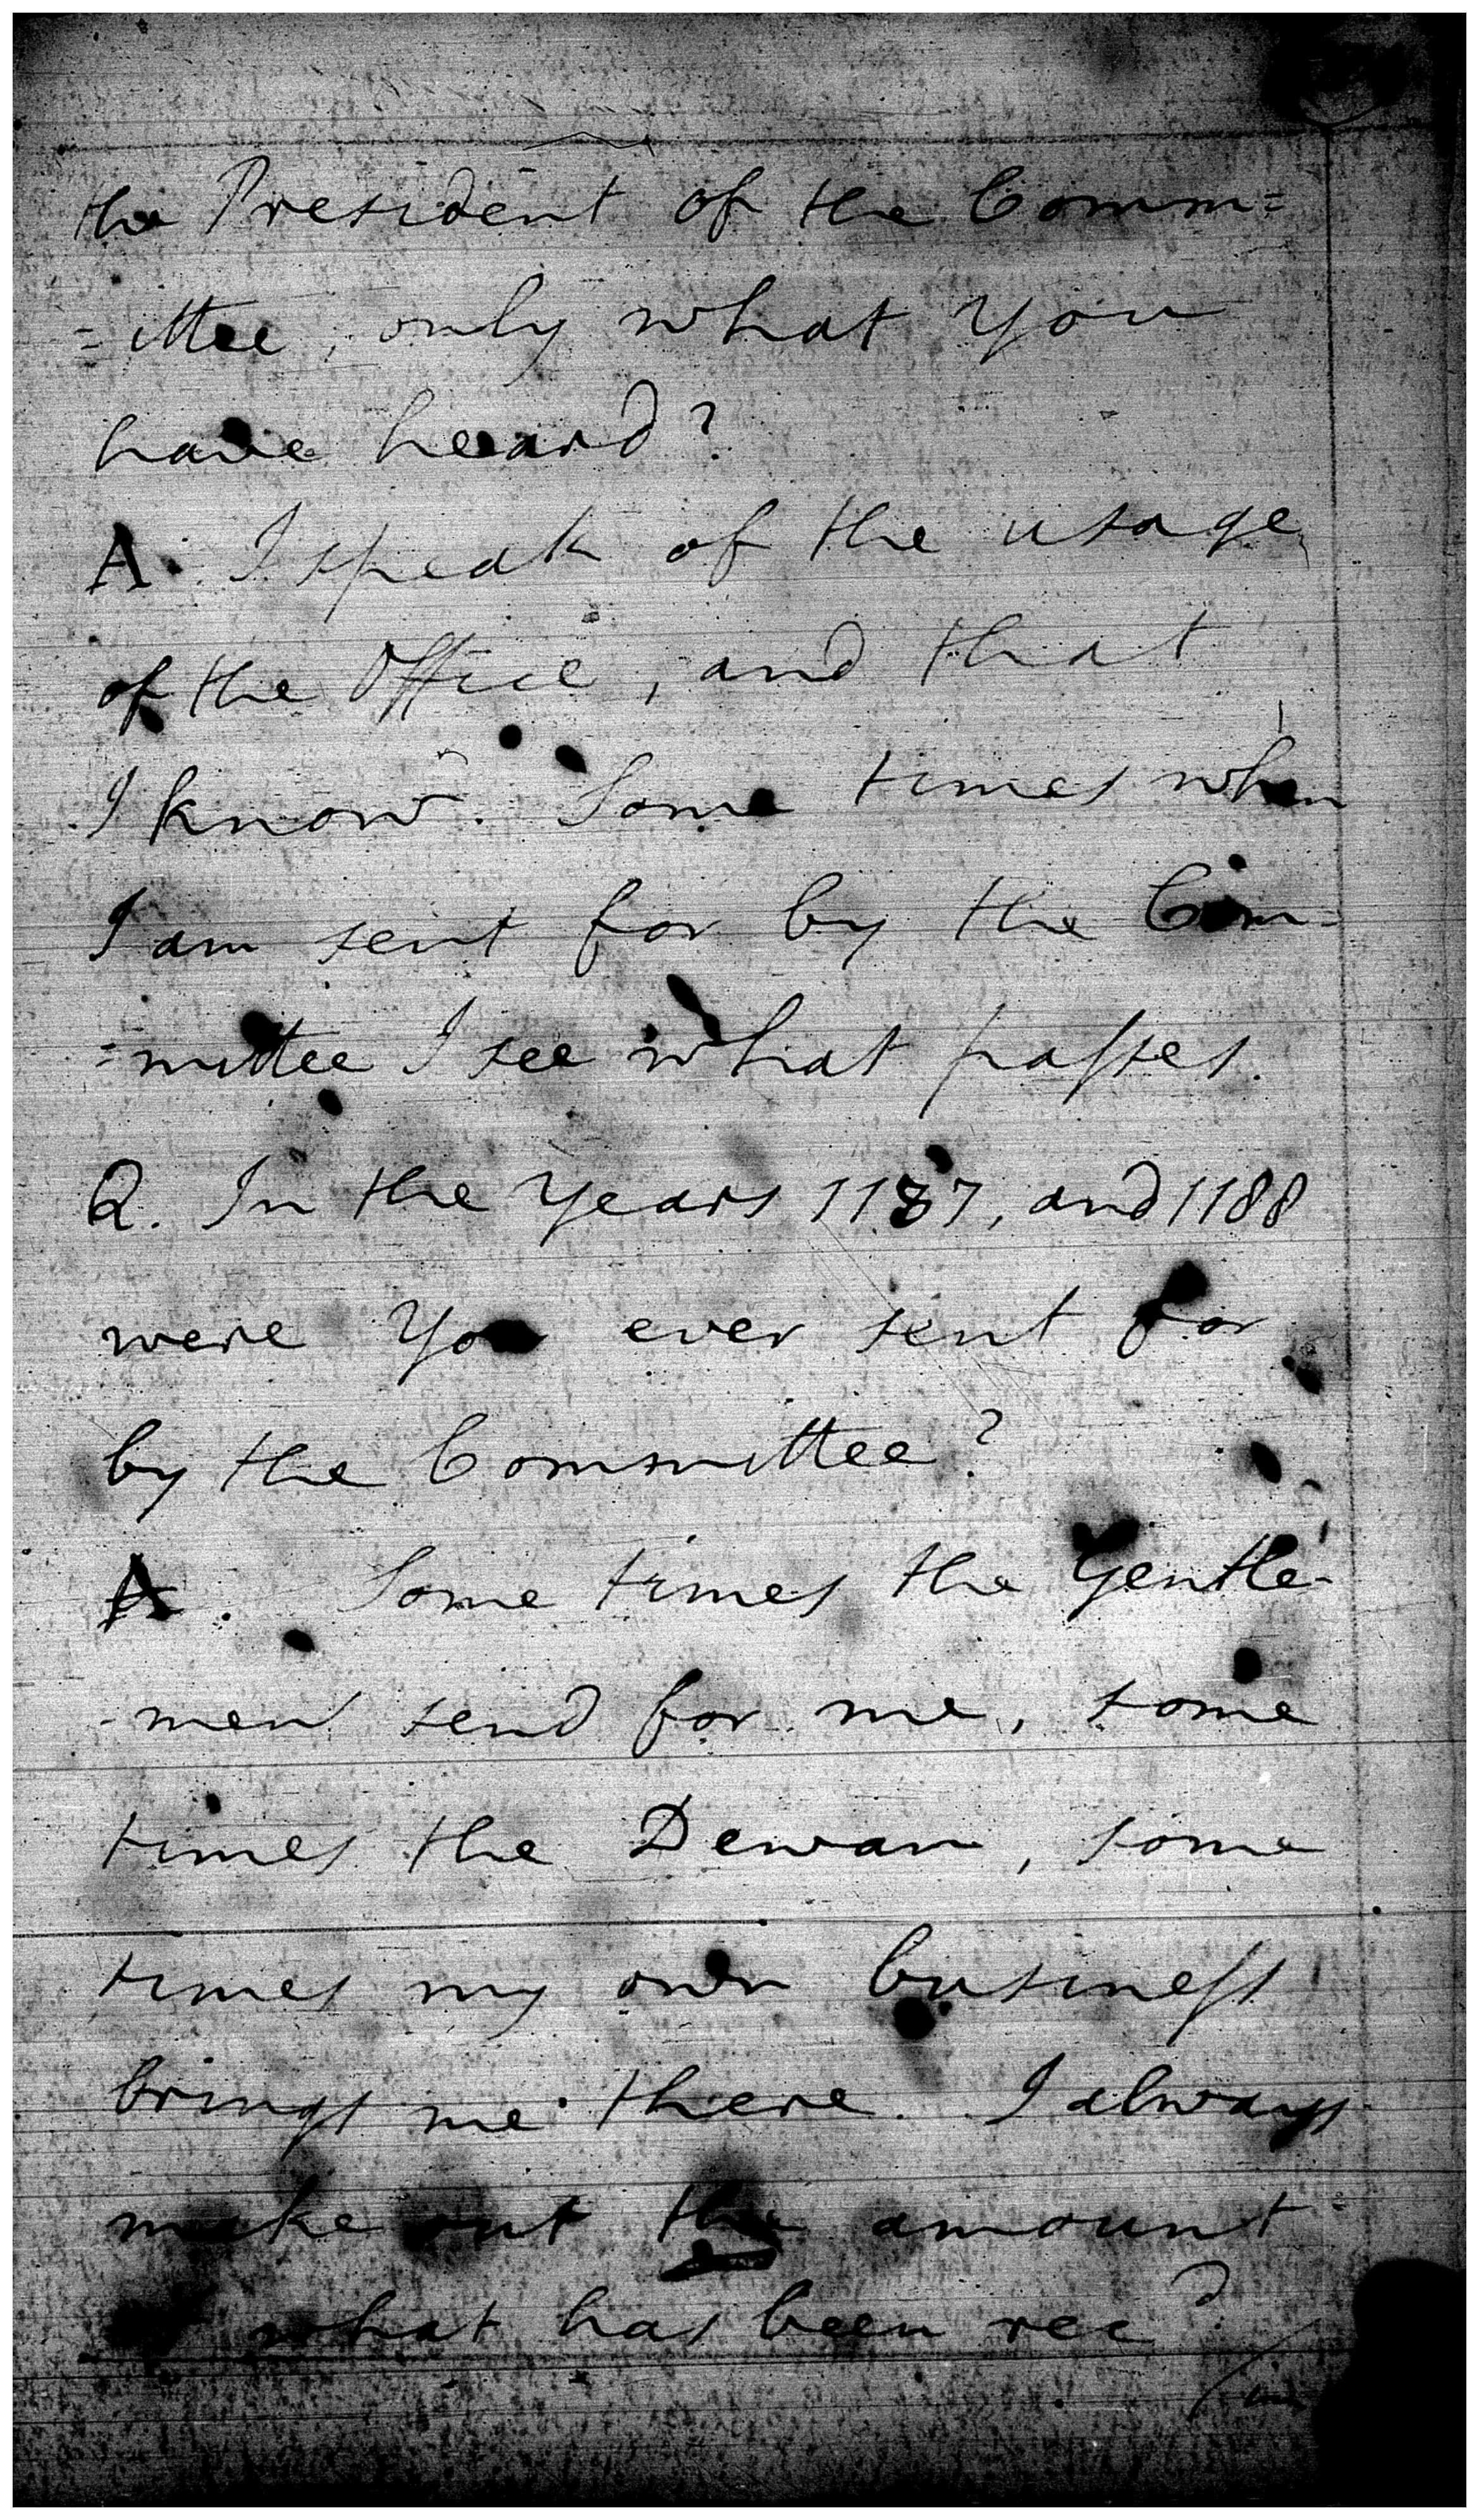 the President of the Comm=
=ittee, only what You
have heard?
A. I speak of the usage
of the Office, and that
I know. Some times when
I am sent for by the Com=
=mittee I see what passes.
Q. In the Years 1187, and 1188
were You ever sent for
by the Committee?
A. Some times the Gentle-
-men send for me, some
times the Dewan, some
times my own business
brings me there. I always
make out the amount
what has been recd